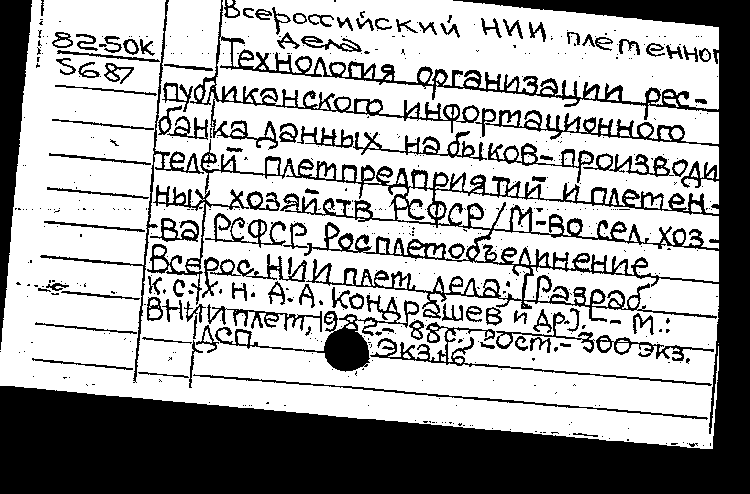 Всероссийский НИИ племенног
82-50К дела.
5687
Технология организации рес-
публиканского информационного
банка данных на быков-производи
телей племпредприятий и племен-
ных хозяйств РСФСР/М-во сел. хоз-
-ва РСФСР, Росплемобъединение,
Всерос. НИИ плем. дела; [Разраб.
к.с.-х.н. А.А. Кондрашев и др.]. - М.:
ВНИИплем, 1982.- 88с.; 20см.- 300 экз.
ДСП. Экз.№